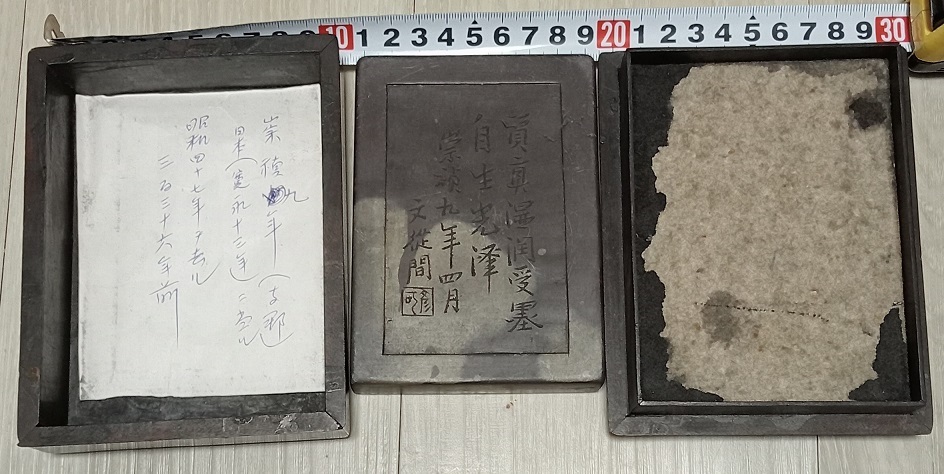 崇禎九年(支那
日本(寛永十三年)ニ当ル
昭和四十七年ヨリ去ル
三百三十六年前
質真湿潤受墨
自生光澤
崇禎九年四月
文從間
10 1 2 3 4 5 6 7 8 9 20 1 2 3 4 5 6 7 8 9 30